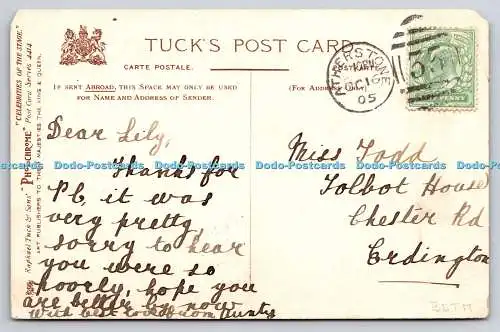 TUCK'S POST CARD
CARTE POSTALE.
POSTKARTE.
IF SENT ABROAD, THIS SPACE MAY ONLY BE USED
FOR NAME AND ADDRESS OF SENDER.
(FOR ADDRESS ONLY.)
"CELEBRITIES OF THE STAGE."
Post Card Series 4414
Raphael Tuck & Sons'
ART PUBLISHERS TO THEIR MAJESTIES THE KING & QUEEN.
ATHERSTONE
05
PENNY
Dear Lily,
Thanks for
P.C, it was
very pretty
sorry to hear
you were so
poorly, hope you
are better by now
With best love from Aunty
Miss Todd
Tolbot House
Chester Rd
Erdington
Dodo-Postcards Dodo-Postcards Dodo-Postcards Dodo-Postcards